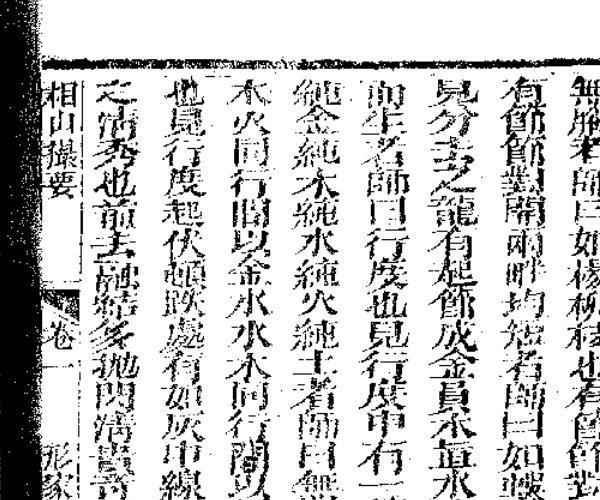 無腳者師曰如楊柳枝也有節節對
有節節對開兩畔均短者師曰如
見分去之龍有起節成金員木直水
而生者師曰行度也見行度中有一
純金純木純水純火純土者師曰無
木火間行間以金水水木間行間以
也見行度起伏頓跌處有如灰中線
之清秀也前去融結多拋閃清貴奇
相山撮要
卷一
形家